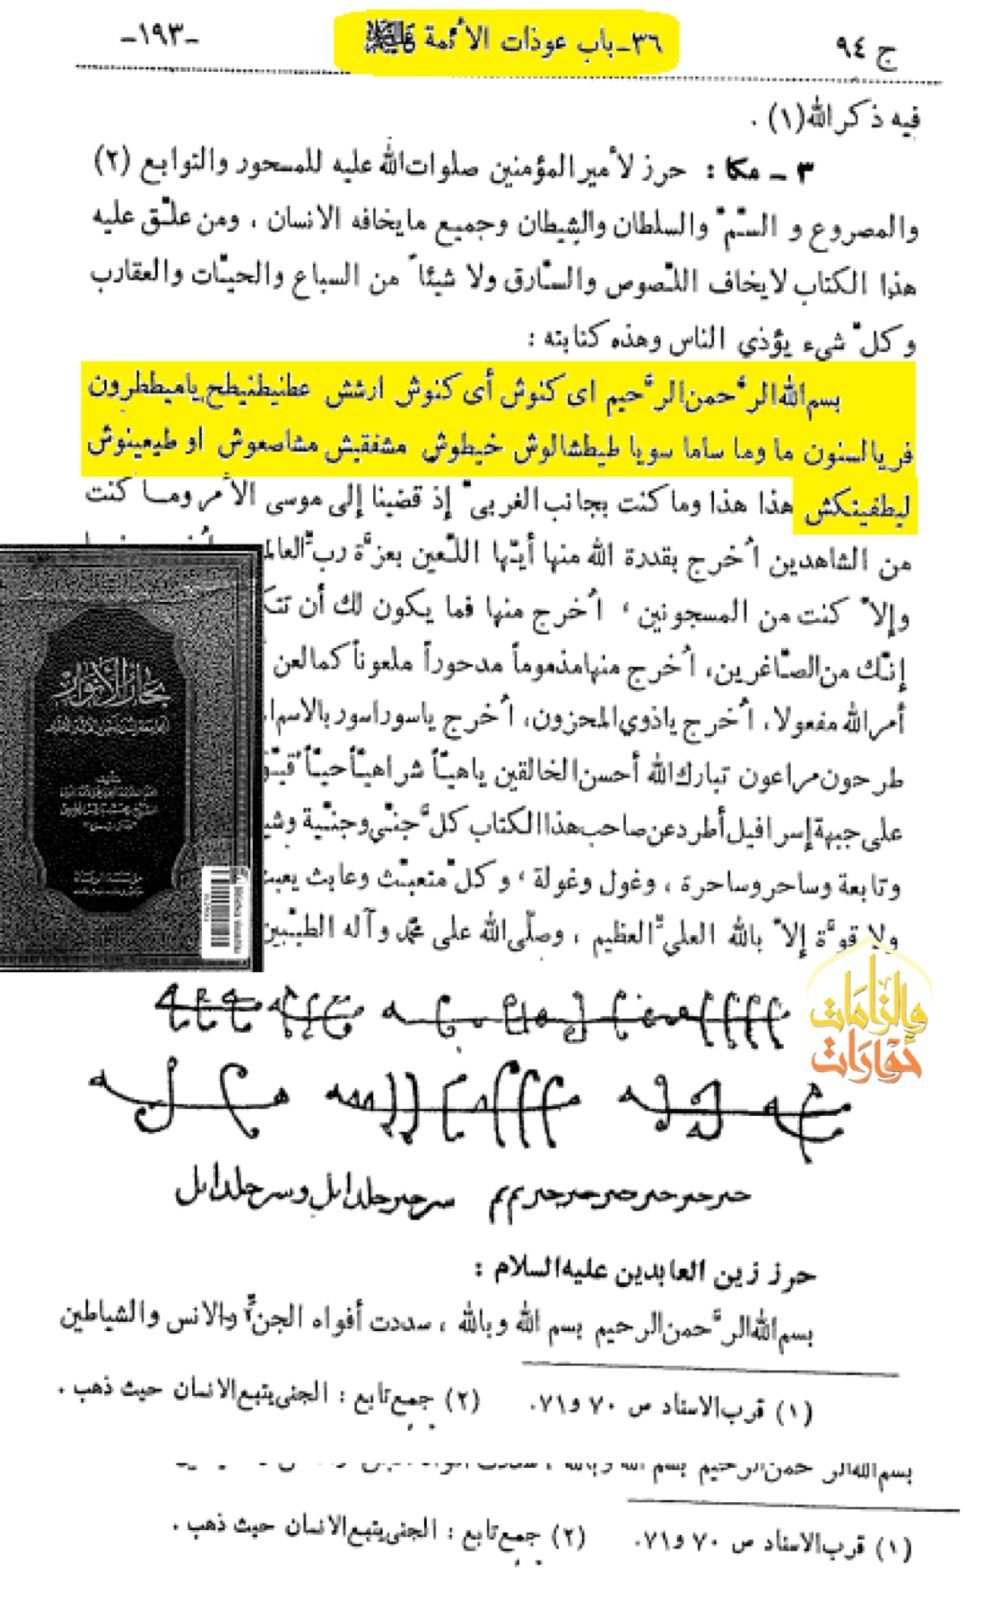 ج ٩٤
٣٦ـ باب عوذات الأئمة عليهم السلام
-١٩٣-
فيه ذكر الله (١) .
٣ ـ مكا : حرز لأمير المؤمنين صلوات الله عليه للمسحور والتوابع (٢)
والمصروع و السّمّ والسلطان والشيطان وجميع مايخافه الانسان ، ومن علّق عليه
هذا الكتاب لايخاف اللّصوص والسّارق ولا شيئاً من السباع والحيّات والعقارب
وكلّ شيء يؤذي الناس وهذه كتابته :
بسم الله الرَّحمن الرَّحيم اى كنوش أى كنوش ارشش عطنيطنيطح ياميططرون
فريالسنون ما وما ساما سويا طيطشالوش خيطوش مشفقيش مشاصعوش او طيعينوش
ليطفينكش هذا هذا وماكنت بجانب الغربيّ إذ قضينا إلى موسى الأمر وما كنت
من الشاهدين اُخرج بقدرة الله منها أيّها اللّعين بعزَّة ربّ
وإلاّ كنت من المسجونين ، اُخرج منها فما يكون لك أن
إنّك من الصّاغرين، اُخرج منها مذموماً مدحوراً ملعوناً كمالعن
أمر الله مفعولا، اُخرج ياذوي المحزون، اُخرج ياسوراسور
طرحون مراعون تبارك الله أحسن الخالقين ياهيّاً شراهيّاً حيّاً
على جبهة إسرافيل أطرد عن صاحب هذا الكتاب كلَّ جنّي وجنّية
وتابعة وساحر وساحرة ، وغول وغولة ، وكلّ متعبّث وعابث
ولا قوَّة إلاّ بالله العليّ العظيم ، وصلّى الله على محمّد وآله الطيّبين
بحار الأنوار
والزامات
حوارات
حرز زين العابدين عليه السلام :
بسم الله الرَّحمن الرحيم بسم الله وبالله ، سددت أفواه الجنّ والانس والشياطين
(١) قرب الاسناد ص ٧٠ و ٧١. (٢) جمع تابع : الجنى يتبع الانسان حيث ذهب .
(١) قرب الاسناد ص ٧٠ و ٧١. (٢) جمع تابع : الجنى يتبع الانسان حيث ذهب .